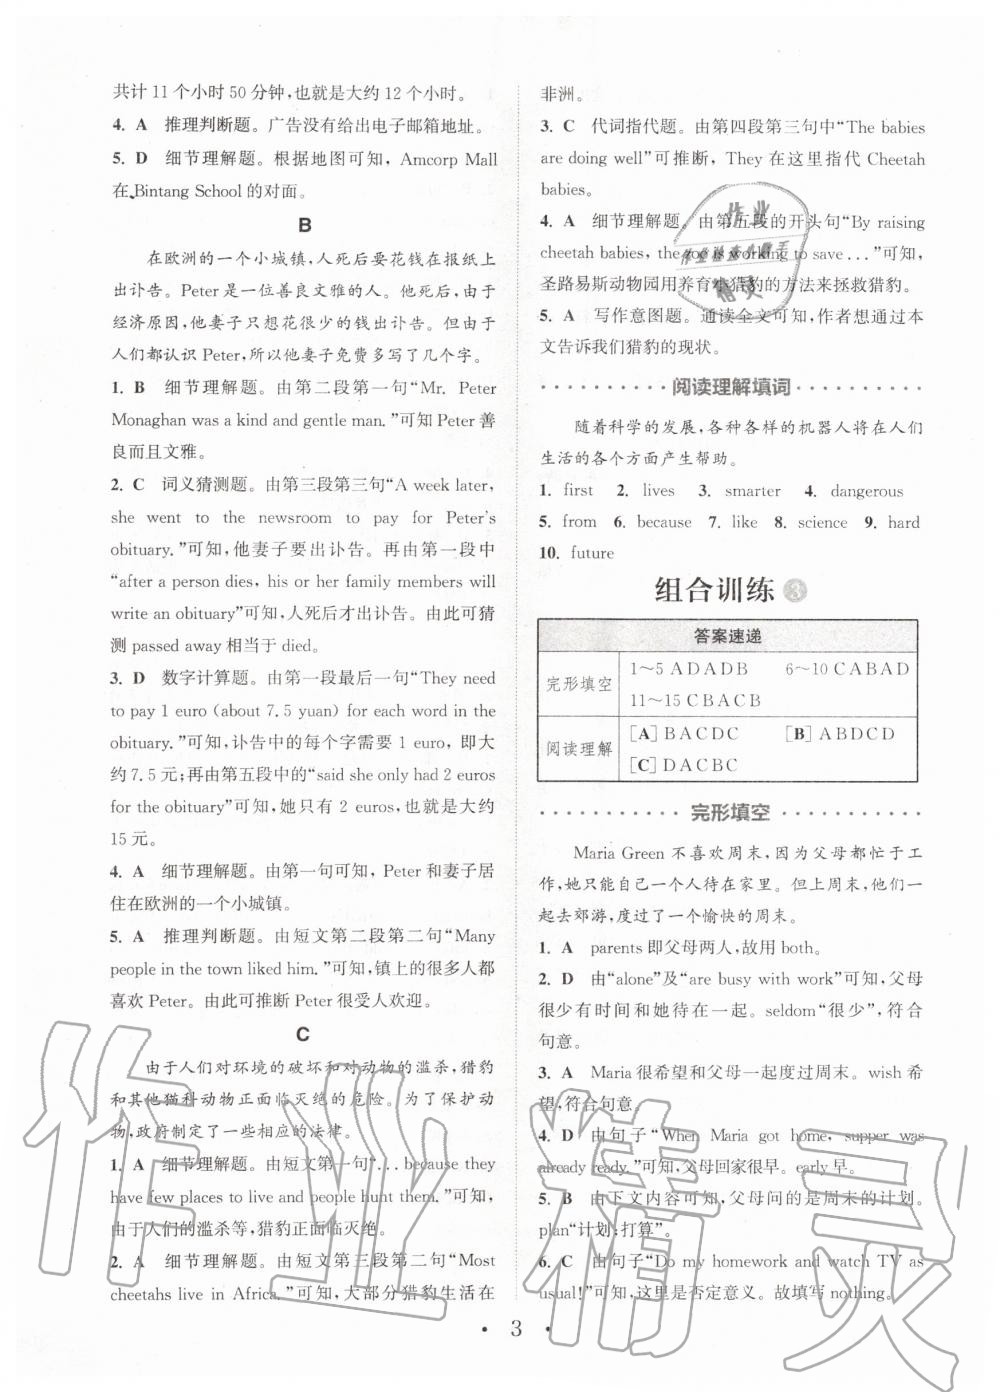 共计11个小时50分钟,也就是大约12个小时。
4. A 推理判断题。广告没有给出电子邮箱地址。
5. D 细节理解题。根据地图可知, Amcorp Mall
在 Bintang School 的对面。
B
在欧洲的一个小城镇,人死后要花钱在报纸上
出讣告。Peter是一位善良文雅的人。他死后,由于
经济原因,他妻子只想花很少的钱出讣告。但由于
人们都认识 Peter,所以他妻子免费多写了几个字。
1. B 细节理解题。由第二段第一句“Mr. Peter
Monaghan was a kind and gentle man.”可知 Peter 善
良而且文雅。
2. C 词义猜测题。由第三段第三句“A week later,
she went to the newsroom to pay for Peter's
obituary.”可知,他妻子要出讣告。再由第一段中
“after a person dies, his or her family members will
write an obituary”可知,人死后才出讣告。由此可猜
测 passed away 相当于 died。
3. D 数字计算题。由第三段最后一句“They need
to pay 1 euro (about 7.5 yuan) for each word in the
obituary.”可知,讣告中的每个字需要 1 euro,即大
约7.5元;再由第五段中的“said she only had 2 euros
for the obituary”可知,她只有 2 euros,也就是大约
15元。
4. A 细节理解题。由第一句可知, Peter和妻子居
住在欧洲的一个小城镇。
5. A 推理判断题。由短文第二段第二句“Many
people in the town liked him.”可知,镇上的很多人都
喜欢 Peter。由此可推断 Peter 很受人欢迎。
C
由于人们对环境的破坏和对动物的滥杀,猎豹
和其他猫科动物正面临灭绝的危险。为了保护动
物,政府制定了一些相应的法律。
1. A 细节理解题。由短文第一句“... because they
have few places to live and people hunt them.”可知,
由于人们的滥杀等,猎豹正面临灭绝。
2. A 细节理解题。由短文第三段第二句“Most
cheetahs live in Africa.”可知,大部分猎豹生活在
非洲。
3. C 代词指代题。由第四段第三句中“The babies
are doing well”可推断, They 在这里指代 Cheetah
babies。
4. A 细节理解题。由第五段的开头句“By raising
cheetah babies, the zoo is working to save ...”可知,
圣路易斯动物园用养育小猎豹的方法来拯救猎豹。
5. A 写作意图题。通读全文可知,作者想通过本
文告诉我们猎豹的现状。
阅读理解填词
随着科学的发展,各种各样的机器人将在人们
生活的各个方面产生帮助。
1. first 2. lives 3. smarter 4. dangerous
5. from 6. because 7. like 8. science 9. hard
10. future
组合训练 3
答案速递
完形填空 1~5 ADADB 6~10 CABAD
11~15 CBACB
阅读理解 [A] BACDC [B] ABDCD
[C] DACBC
完形填空
Maria Green 不喜欢周末,因为父母都忙于工
作,她只能自己一个人待在家里。但上周末,他们一
起去郊游,度过了一个愉快的周末。
1. A parents 即父母两人,故用 both。
2. D 由“alone”及“are busy with work”可知,父母
很少有时间和她待在一起。seldom“很少”,符合
句意。
3. A Maria 很希望和父母一起度过周末。wish 希
望,符合句意。
4. D 由句子“When Maria got home, supper was
already ready.”可知,父母回家很早。early 早。
5. B 由下文内容可知,父母问的是周末的计划。
plan“计划;打算”。
6. C 由句子“Do my homework and watch TV as
usual!”可知,这里是否定意义。故填写 nothing。
• 3 •
作业
作业检查小帮手
精灵
作业精灵